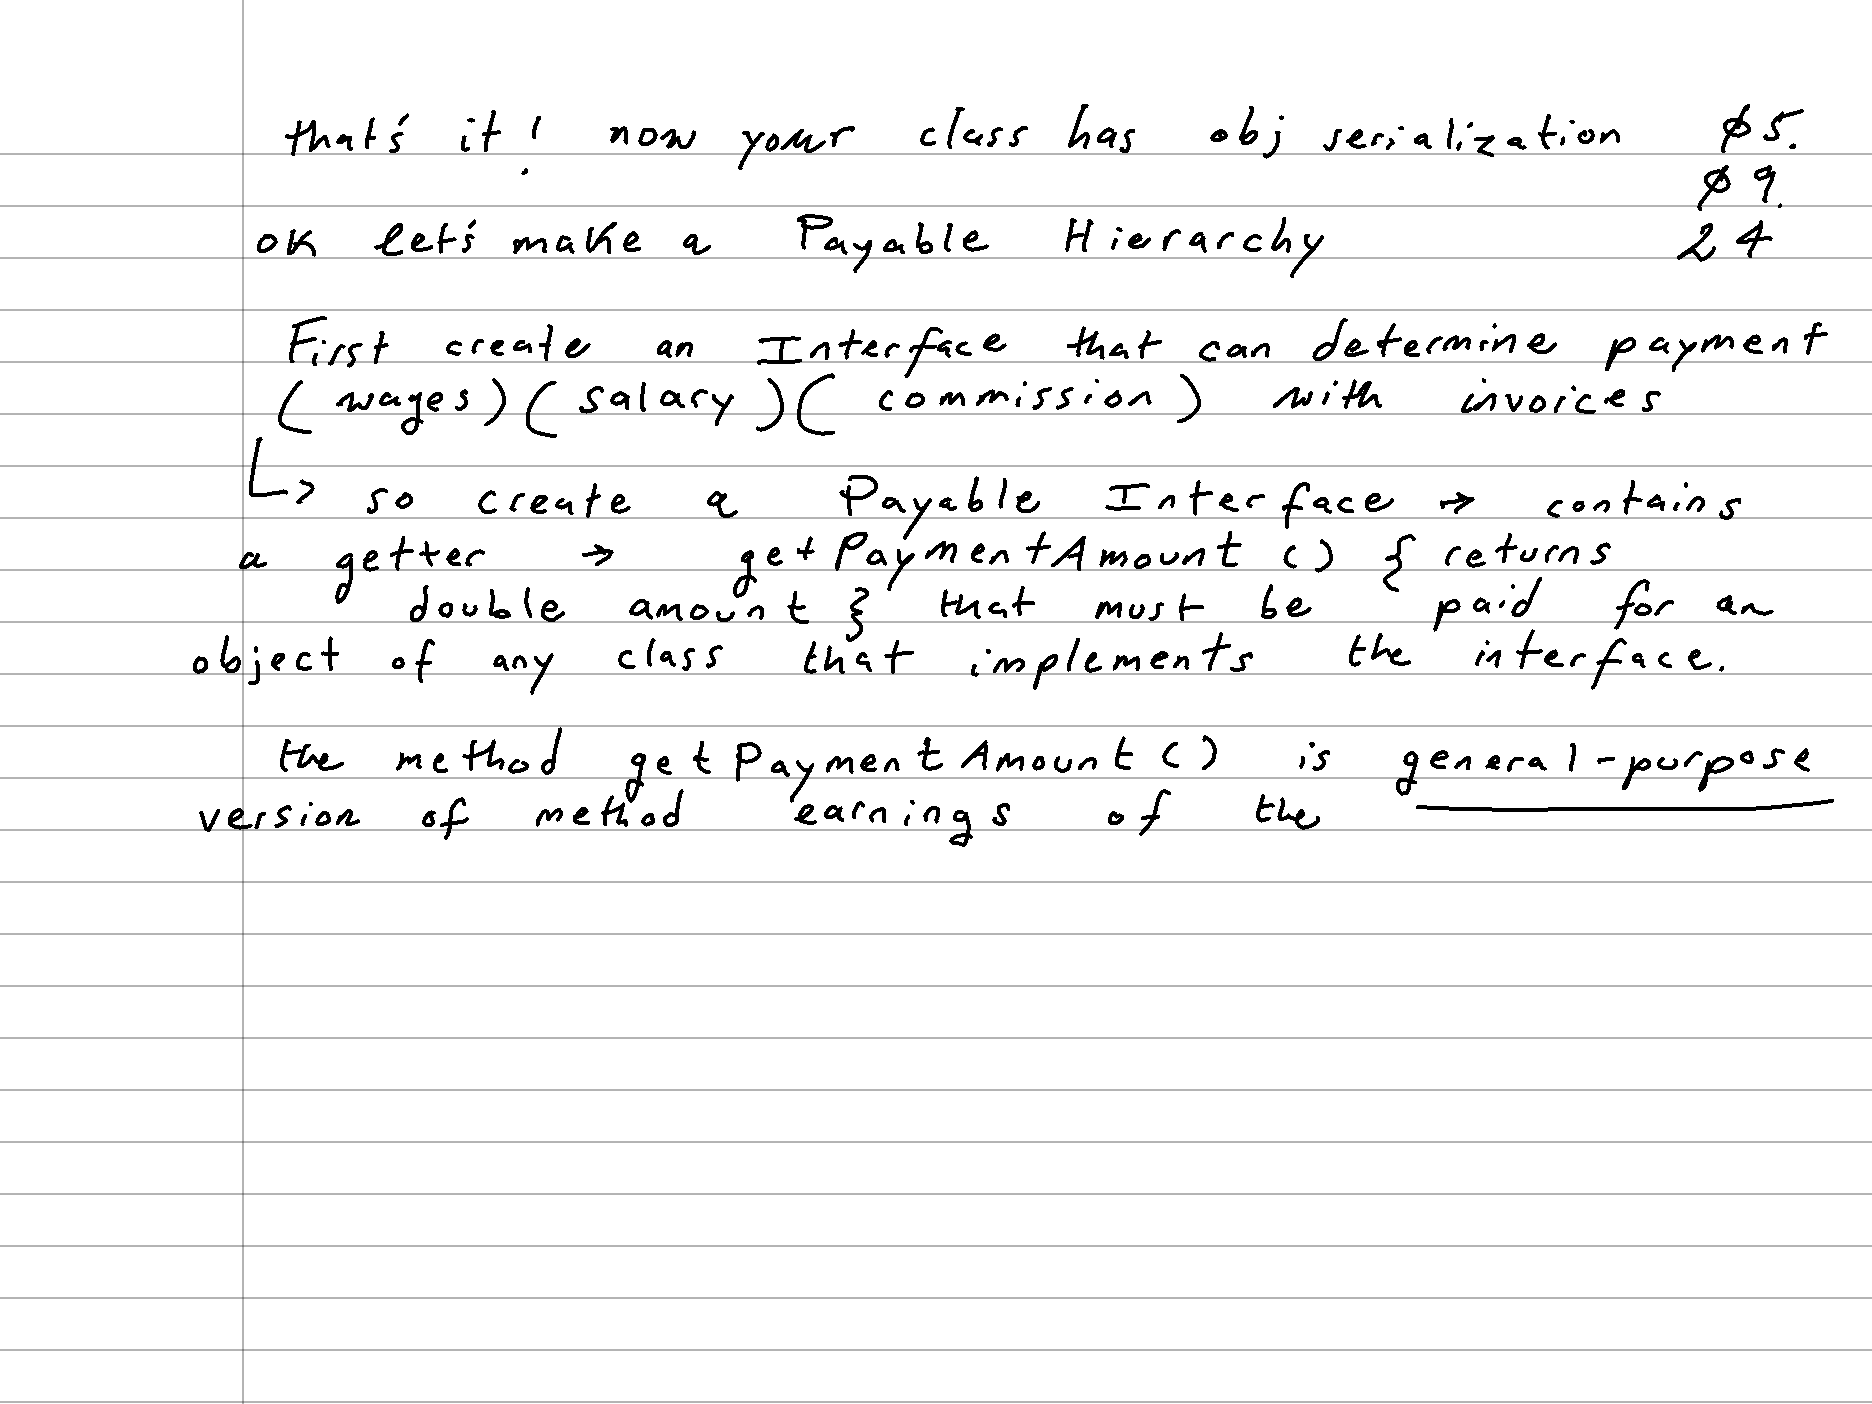 that's it! now your class has obj serialization ø5.
ø9.
ok let's make a Payable Hierarchy 24
First create an Interface that can determine payment
(wages)(salary)(commission) with invoices
↳ so create a Payable Interface → contains
a getter → getPaymentAmount () { returns
double amount } that must be paid for an
object of any class that implements the interface.
the method getPaymentAmount() is general-purpose
version of method earnings of the